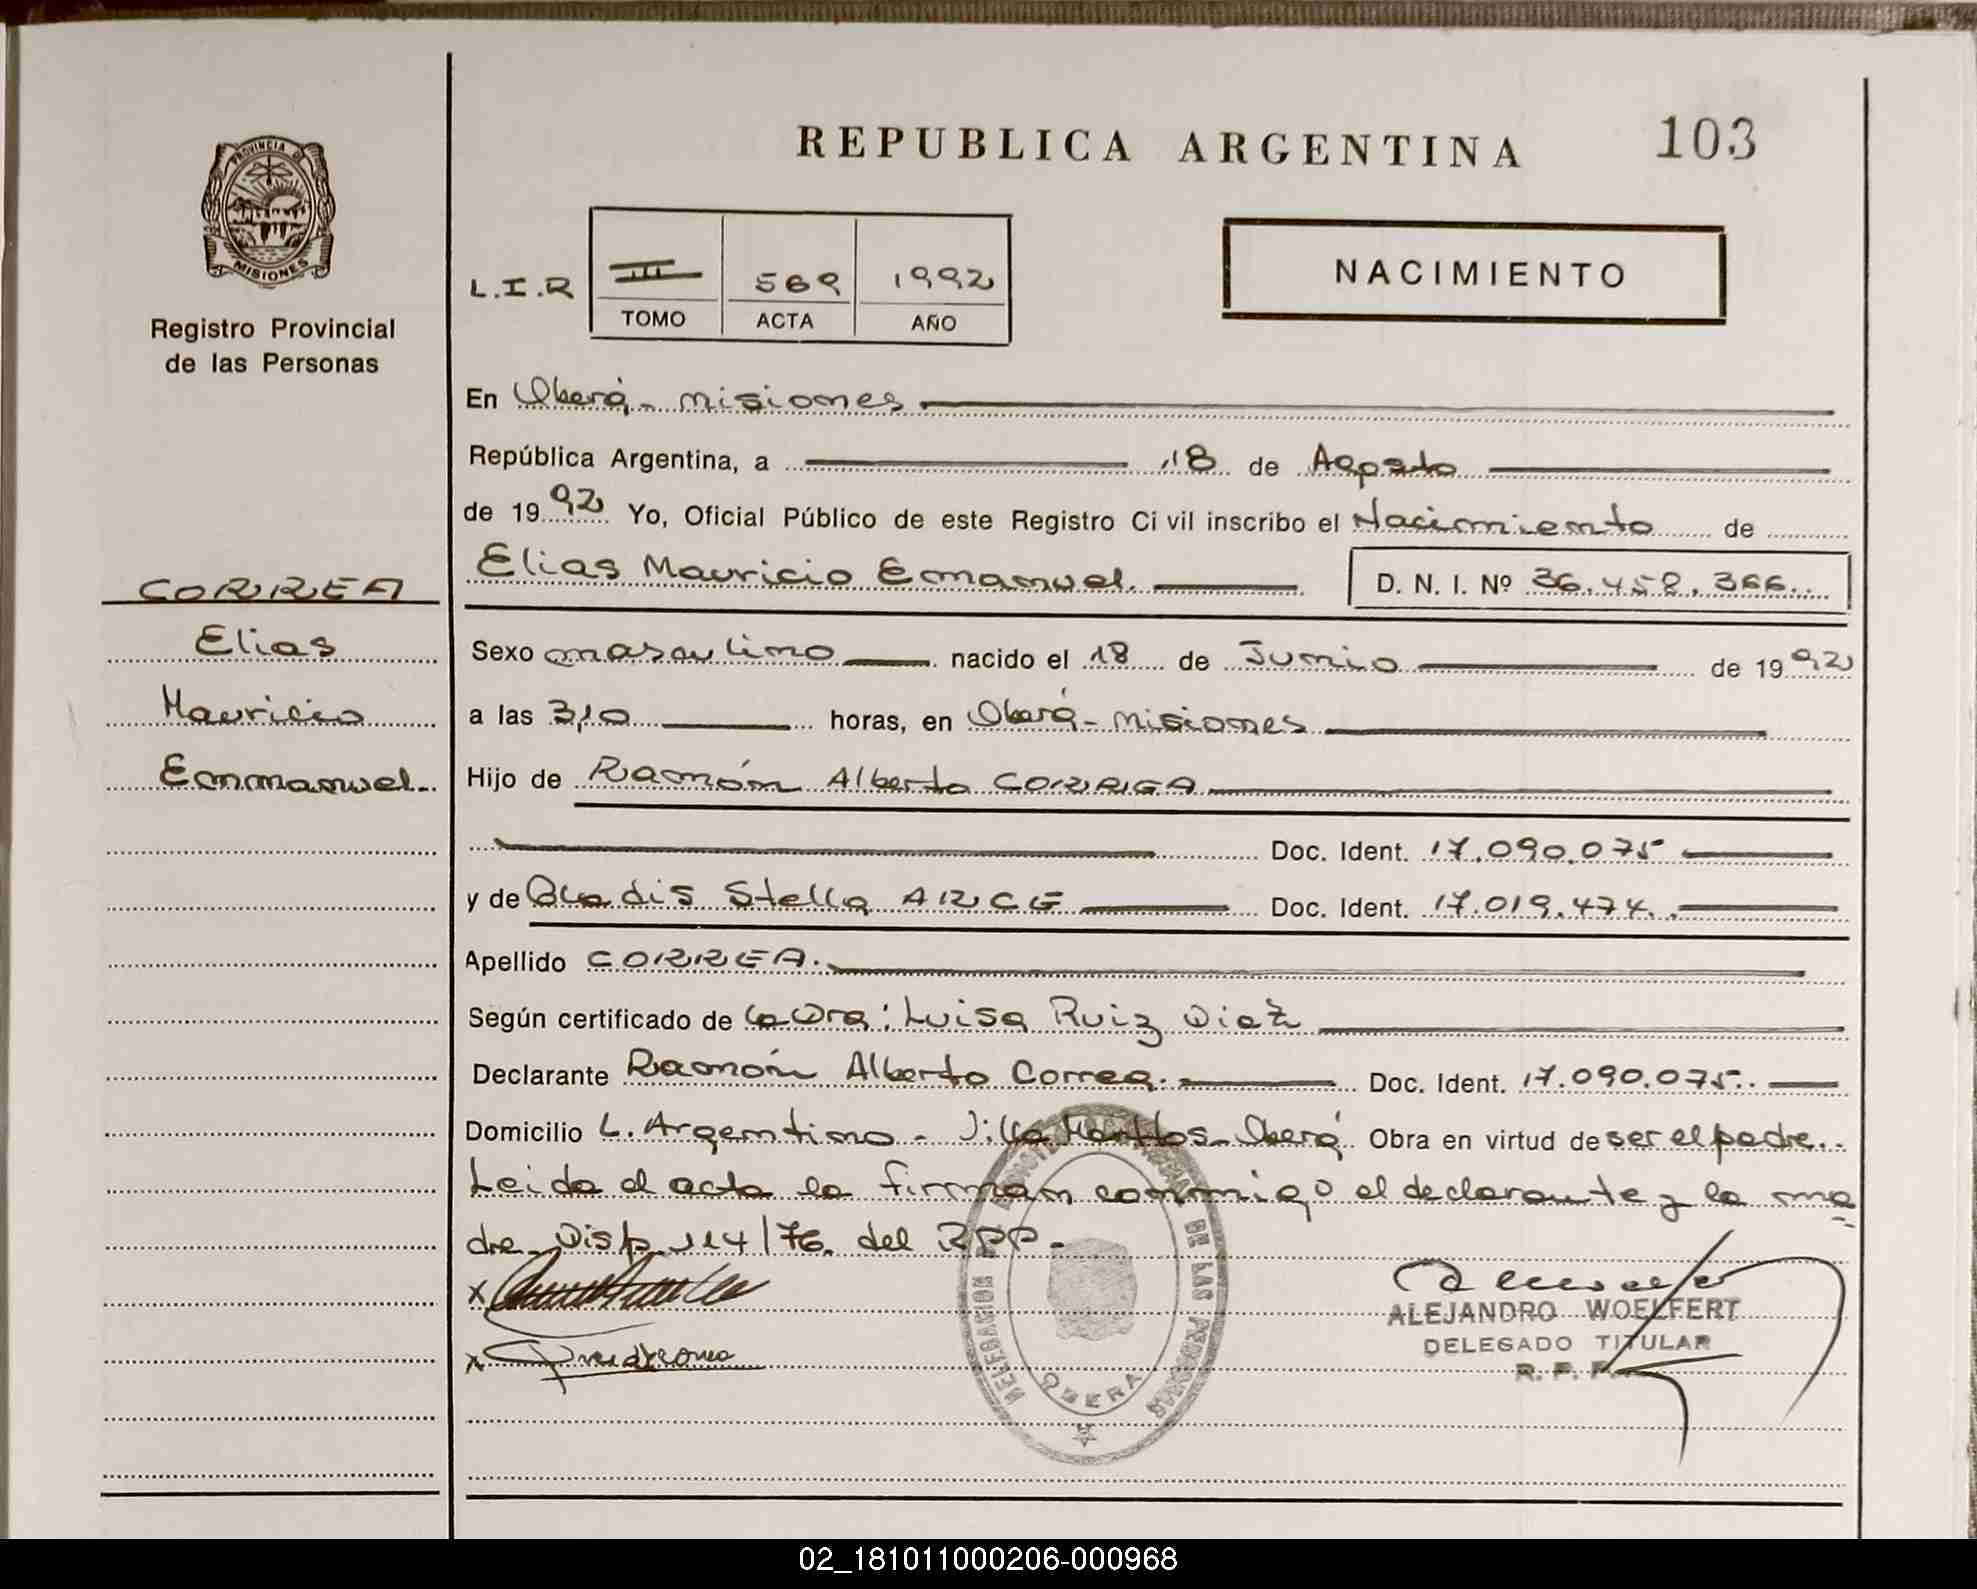 REPUBLICA ARGENTINA
103
PROVINCIA DE
MISIONES
Registro Provincial
de las Personas
L.I.R
III 569 1992
TOMO ACTA AÑO
NACIMIENTO
En Oberá - misiones
República Argentina, a 18 de Agosto
de 1992 Yo, Oficial Público de este Registro Civil inscribo el Nacimiento de
Elias Mauricio Emanuel. D. N. I. Nº 36.458.366
CORREA
Elias
Mauricio
Emmanuel.
Sexo masculino nacido el 18 de Junio de 1992
a las 3,10 horas, en Oberá - misiones
Hijo de Ramón Alberto CORREA
Doc. Ident. 17.090.075
y de Gladis Stella ARCE Doc. Ident. 17.019.474.
Apellido CORREA.
Según certificado de la Dra: Luisa Ruiz Diaz
Declarante Ramón Alberto Correa. Doc. Ident. 17.090.075.
Domicilio L. Argentino - Villa Oberá. Obra en virtud de ser el padre.
Leida el acta la firman conmigo el declarante y la ma
dre - Disp. 114/76 del RPP -
x
x
ALEJANDRO WOELFERT
DELEGADO TITULAR
R. P. P.
DELEGACION DE LAS PERSONAS
OBERA
02_181011000206-000968